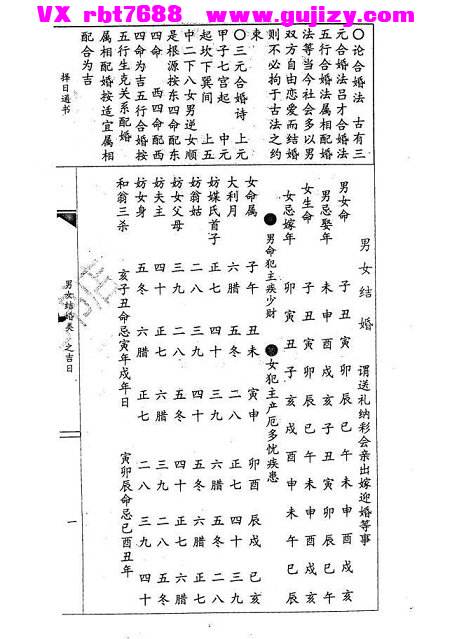 VX rbt7688 www.gujizy.com
〇论合婚法　古有三
元合婚法吕才合婚法
五行合婚法属相配婚
法等当今社会多以男
双方自由恋爱而结婚
则不必拘于古法之约
束
〇三元合婚诗　上元
甲子七宫起　中元
起坎下巽间　上五
中二下八女男逆女顺
是根源按东四命配东
四命　西四命配西
四命为吉五行合婚按
五行生克关系配婚
属相配婚按适宜属相
配合为吉
择日通书
男女结婚　谓送礼纳彩会亲出嫁迎婚等事
男女命　子丑寅卯辰巳午未申酉戌亥
男忌娶年　未申酉戌亥子丑寅卯辰巳午
女生命　子丑寅卯辰巳午未申酉戌亥
女忌嫁年　卯寅丑子亥戌酉申未午巳辰
男命犯主疾少财　女犯主产厄多忧疾患
女命属　子午　丑未　寅申　卯酉　辰戌　巳亥
大利月　六腊　五冬　二八　正七　四十　三九
妨媒氏首子　正七　四十　三九　六腊　五冬　二八
妨翁姑　二八　三九　四十　五冬　六腊　正七
妨女父母　三九　二八　五冬　四十　正七　六腊
妨夫主　四十　正七　六腊　三九　二八　五冬
妨女身　五冬　六腊　正七　二八　三九　四十
和翁三杀　亥子丑命忌寅年戌年日　寅卯辰命忌已酉丑年
男女结婚类　之吉日
一